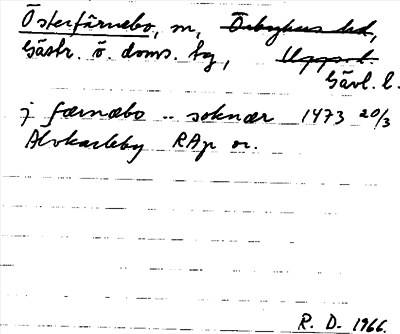 Österfärnebo, sn, Örbyhus hd,
Gästr. ö. doms. bg, Upps. l.
Gävl. l.
j færnæbo .. soknær 1473 20/3
Älvkarleby RAp or.
R. D. 1966.